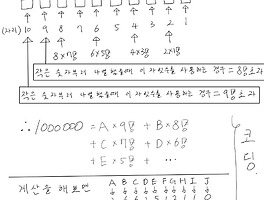 (자리) 10 9 8 7 6 5 4 3 2 1
8×7명 6×5명 4×3명 2×1명
작은 숫자부터 나열했을때 이 자릿수를 사용하는 경우 = 8명 초과
작은 숫자부터 나열했을때 이 자릿수를 사용하는 경우 = 9명 초과
∴ 1000000 = A × 9명 + B × 8명
+ C × 7명 + D × 6명
+ E × 5명 + ⋯
코딩.
계산을 해보면 A B C D E F G H I J